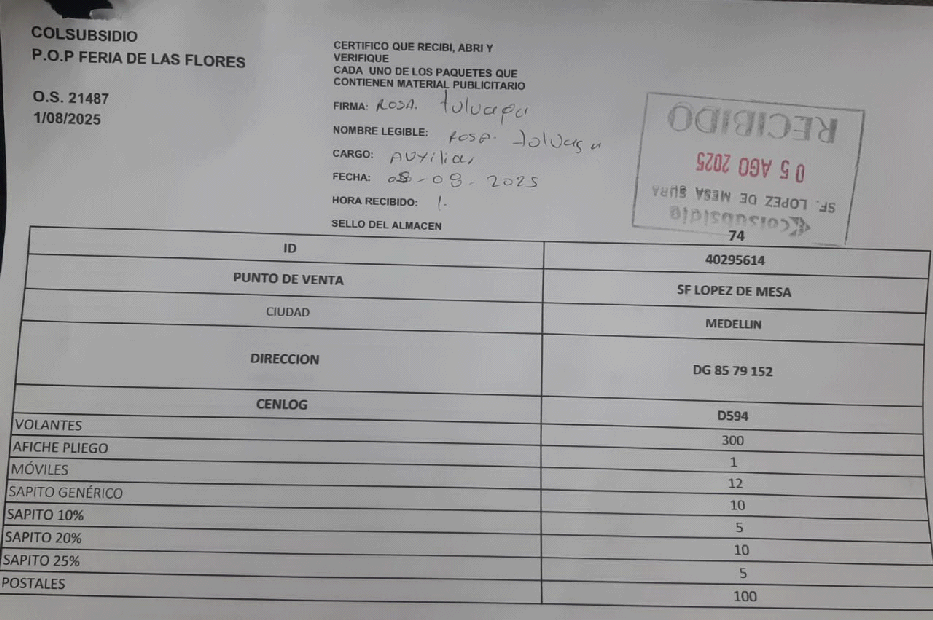 COLSUBSIDIO
P.O.P FERIA DE LAS FLORES
O.S. 21487
1/08/2025
CERTIFICO QUE RECIBI, ABRI Y
VERIFIQUE
CADA UNO DE LOS PAQUETES QUE
CONTIENEN MATERIAL PUBLICITARIO
FIRMA: Rosa.
NOMBRE LEGIBLE: Rosa.
CARGO: Auxiliar
FECHA: 05-08-2025
HORA RECIBIDO: 1.
SELLO DEL ALMACEN
RECIBIDO
05 AGO 2025
SF. LOPEZ DE MESA SURA
Colsubsidio
74
ID 40295614
PUNTO DE VENTA SF LOPEZ DE MESA
CIUDAD MEDELLIN
DIRECCION DG 85 79 152
CENLOG D594
VOLANTES 300
AFICHE PLIEGO 1
MÓVILES 12
SAPITO GENÉRICO 10
SAPITO 10% 5
SAPITO 20% 10
SAPITO 25% 5
POSTALES 100